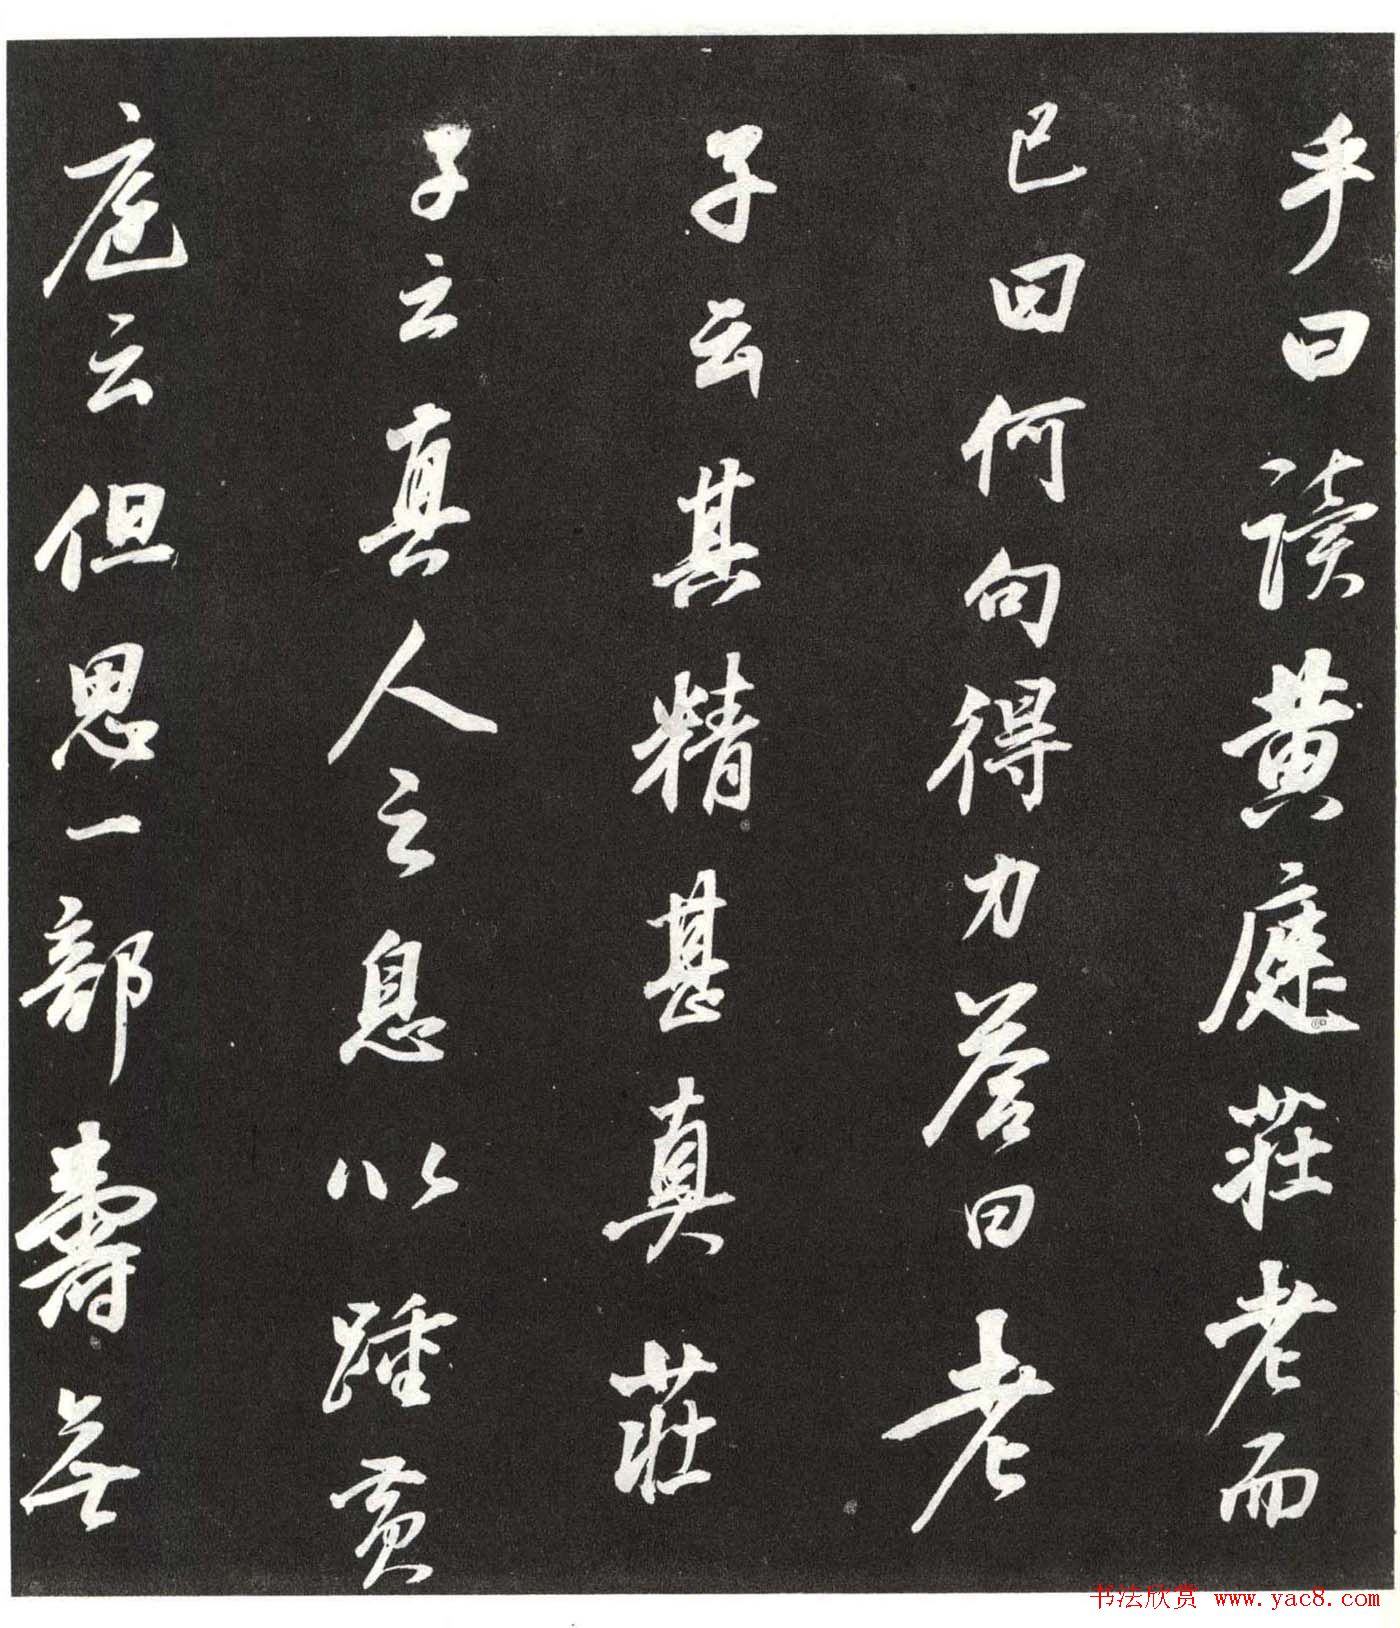 乎曰讀黄庭莊老而
已曰何句得力答曰老
子云其精甚真莊
子云真人之息以踵黄
庭云但思一部壽無
书法欣赏 www.yac8.com